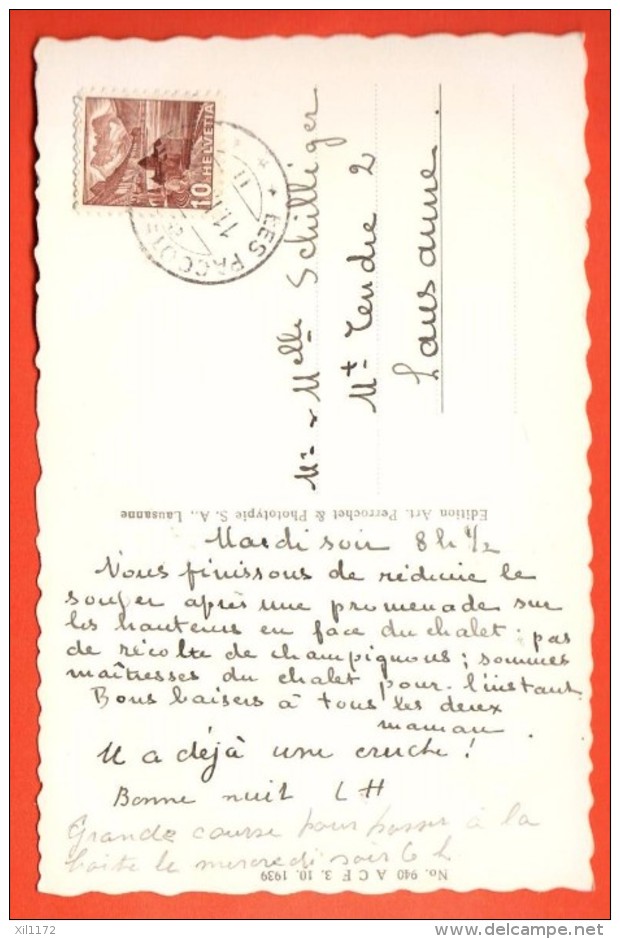 10 HELVETIA
LES PACCOTS
Mr & Melle Schilliger
Mt Tendre 2
Lausanne.
Edition Art. Perrochet & Phototypie S. A., Lausanne
Mardi soir 8 h 1/2
Nous finissons de réduire le
souper après une promenade sur
les hauteurs en face du chalet; pas
de récolte de champignons; sommes
maîtresses du chalet pour l'instant
Bons baisers à tous les deux
maman.
Il a déjà une cruche!
Bonne nuit LH
Grande course pour poser à la
boîte le mercredi soir 6 h
No. 940 A C F 3. 10. 1939
xil1172
www.delcampe.net